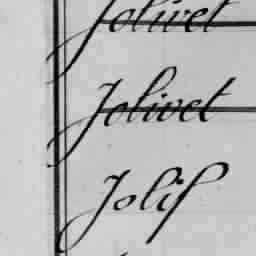 Jolivet
Jolivet
Jolif